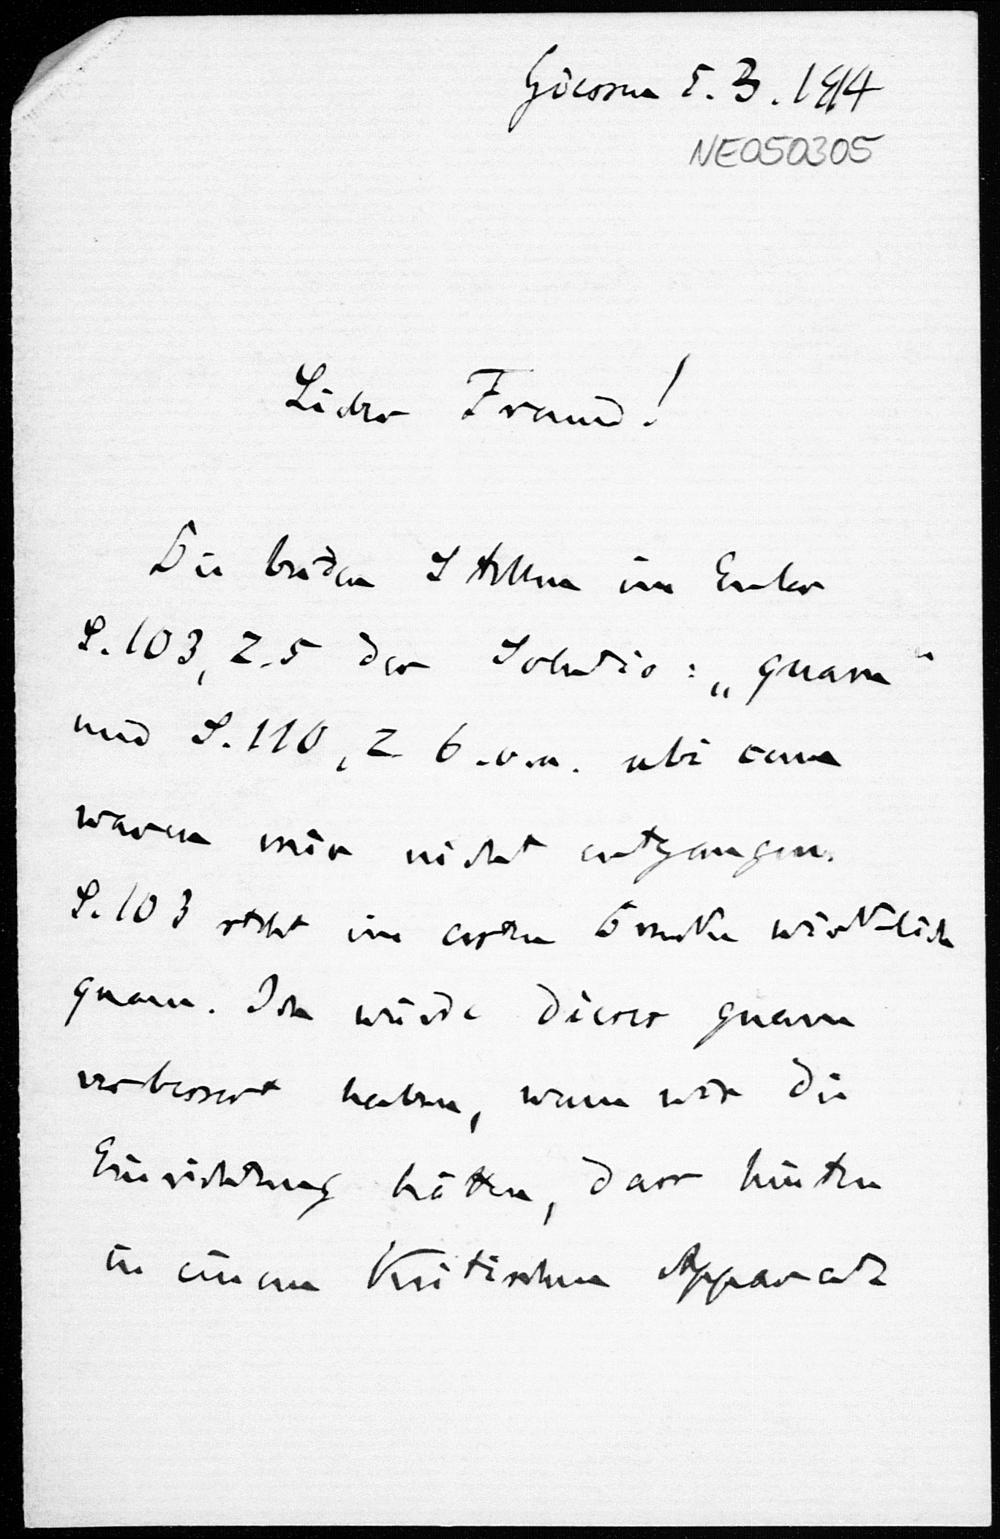 Giessen 5.3.1914
NE050305
Lieber Freund!
Die beiden Stellen im Euler
S.103, Z.5 der Solutio: „quam“
und S.110, Z 6.v.u. ubi eam
waren mir nicht entgangen.
S.103 steht im ersten Drucke wirklich
quam. Ich würde dieses quam
verbessert haben, wenn wir die
Einrichtung hätten, dass hinten
in einem Kritischen Apparate